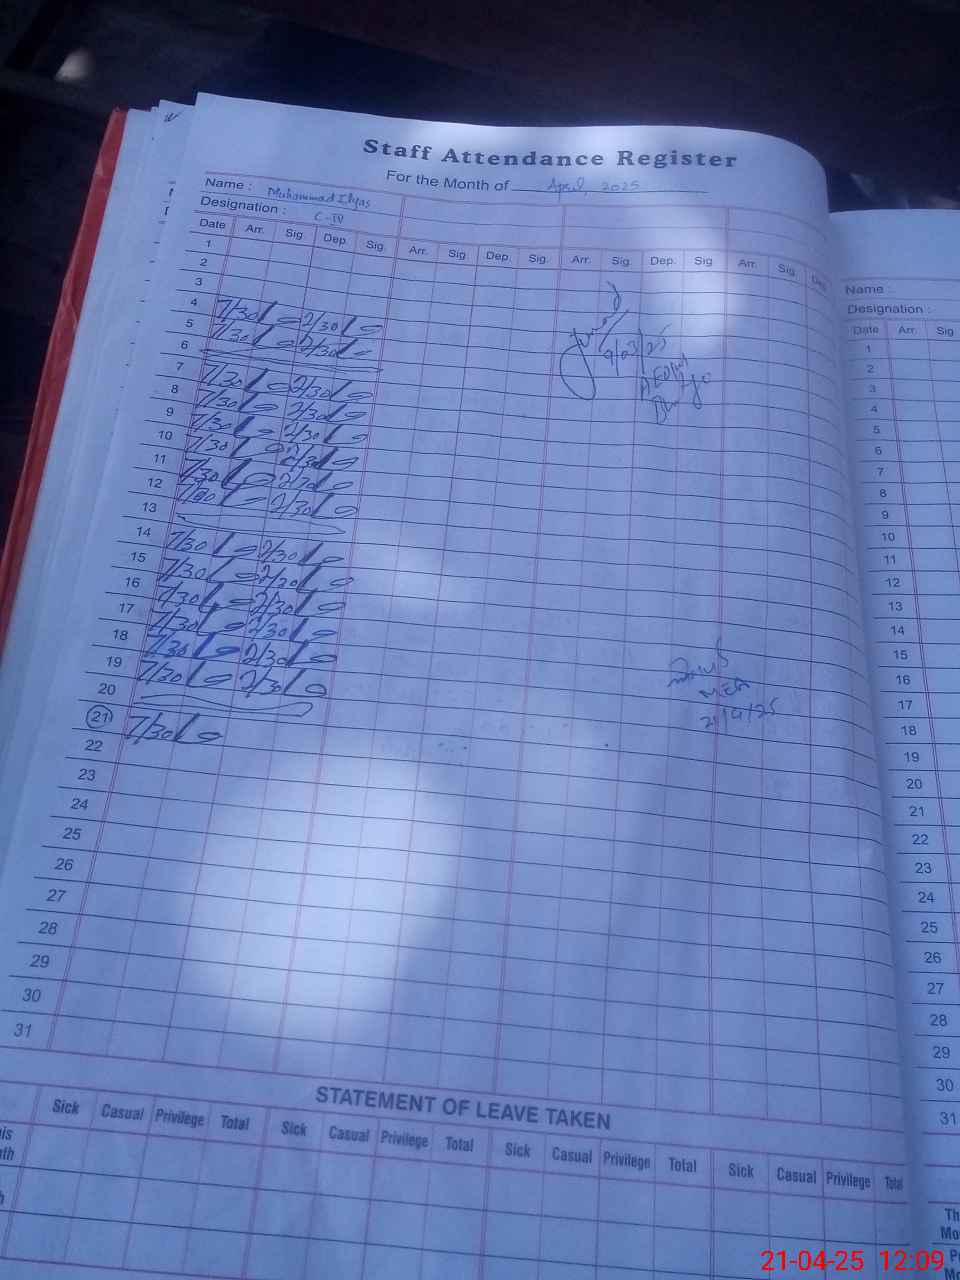 Staff Attendance Register
For the Month of April, 2025
Name : Muhammad Ilyas
Designation : C-IV
Date Arr. Sig. Dep. Sig. Arr. Sig. Dep. Sig. Arr. Sig. Dep. Sig Arr. Sig. Dep.
1
2
3
4 7/30 2/30
5 7/30 2/30
6
7 7/30 2/30
8 7/30 2/30
9 7/30 2/30
10 7/30 2/30
11 7/30 2/30
12 7/30 2/30
13
14 7/30 2/30
15 7/30 2/20
16 7/30 2/30
17 7/30 2/30
18 7/30 2/30
19 7/30 2/30
20
21 7/30
22
23
24
25
26
27
28
29
30
31
9/03/25
MEA
21/4/25
STATEMENT OF LEAVE TAKEN
Sick Casual Privilege Total Sick Casual Privilege Total Sick Casual Privilege Total Sick Casual Privilege Total
Name :
Designation :
Date Arr. Sig
1
2
3
4
5
6
7
8
9
10
11
12
13
14
15
16
17
18
19
20
21
22
23
24
25
26
27
28
29
30
31
21-04-25 12:09